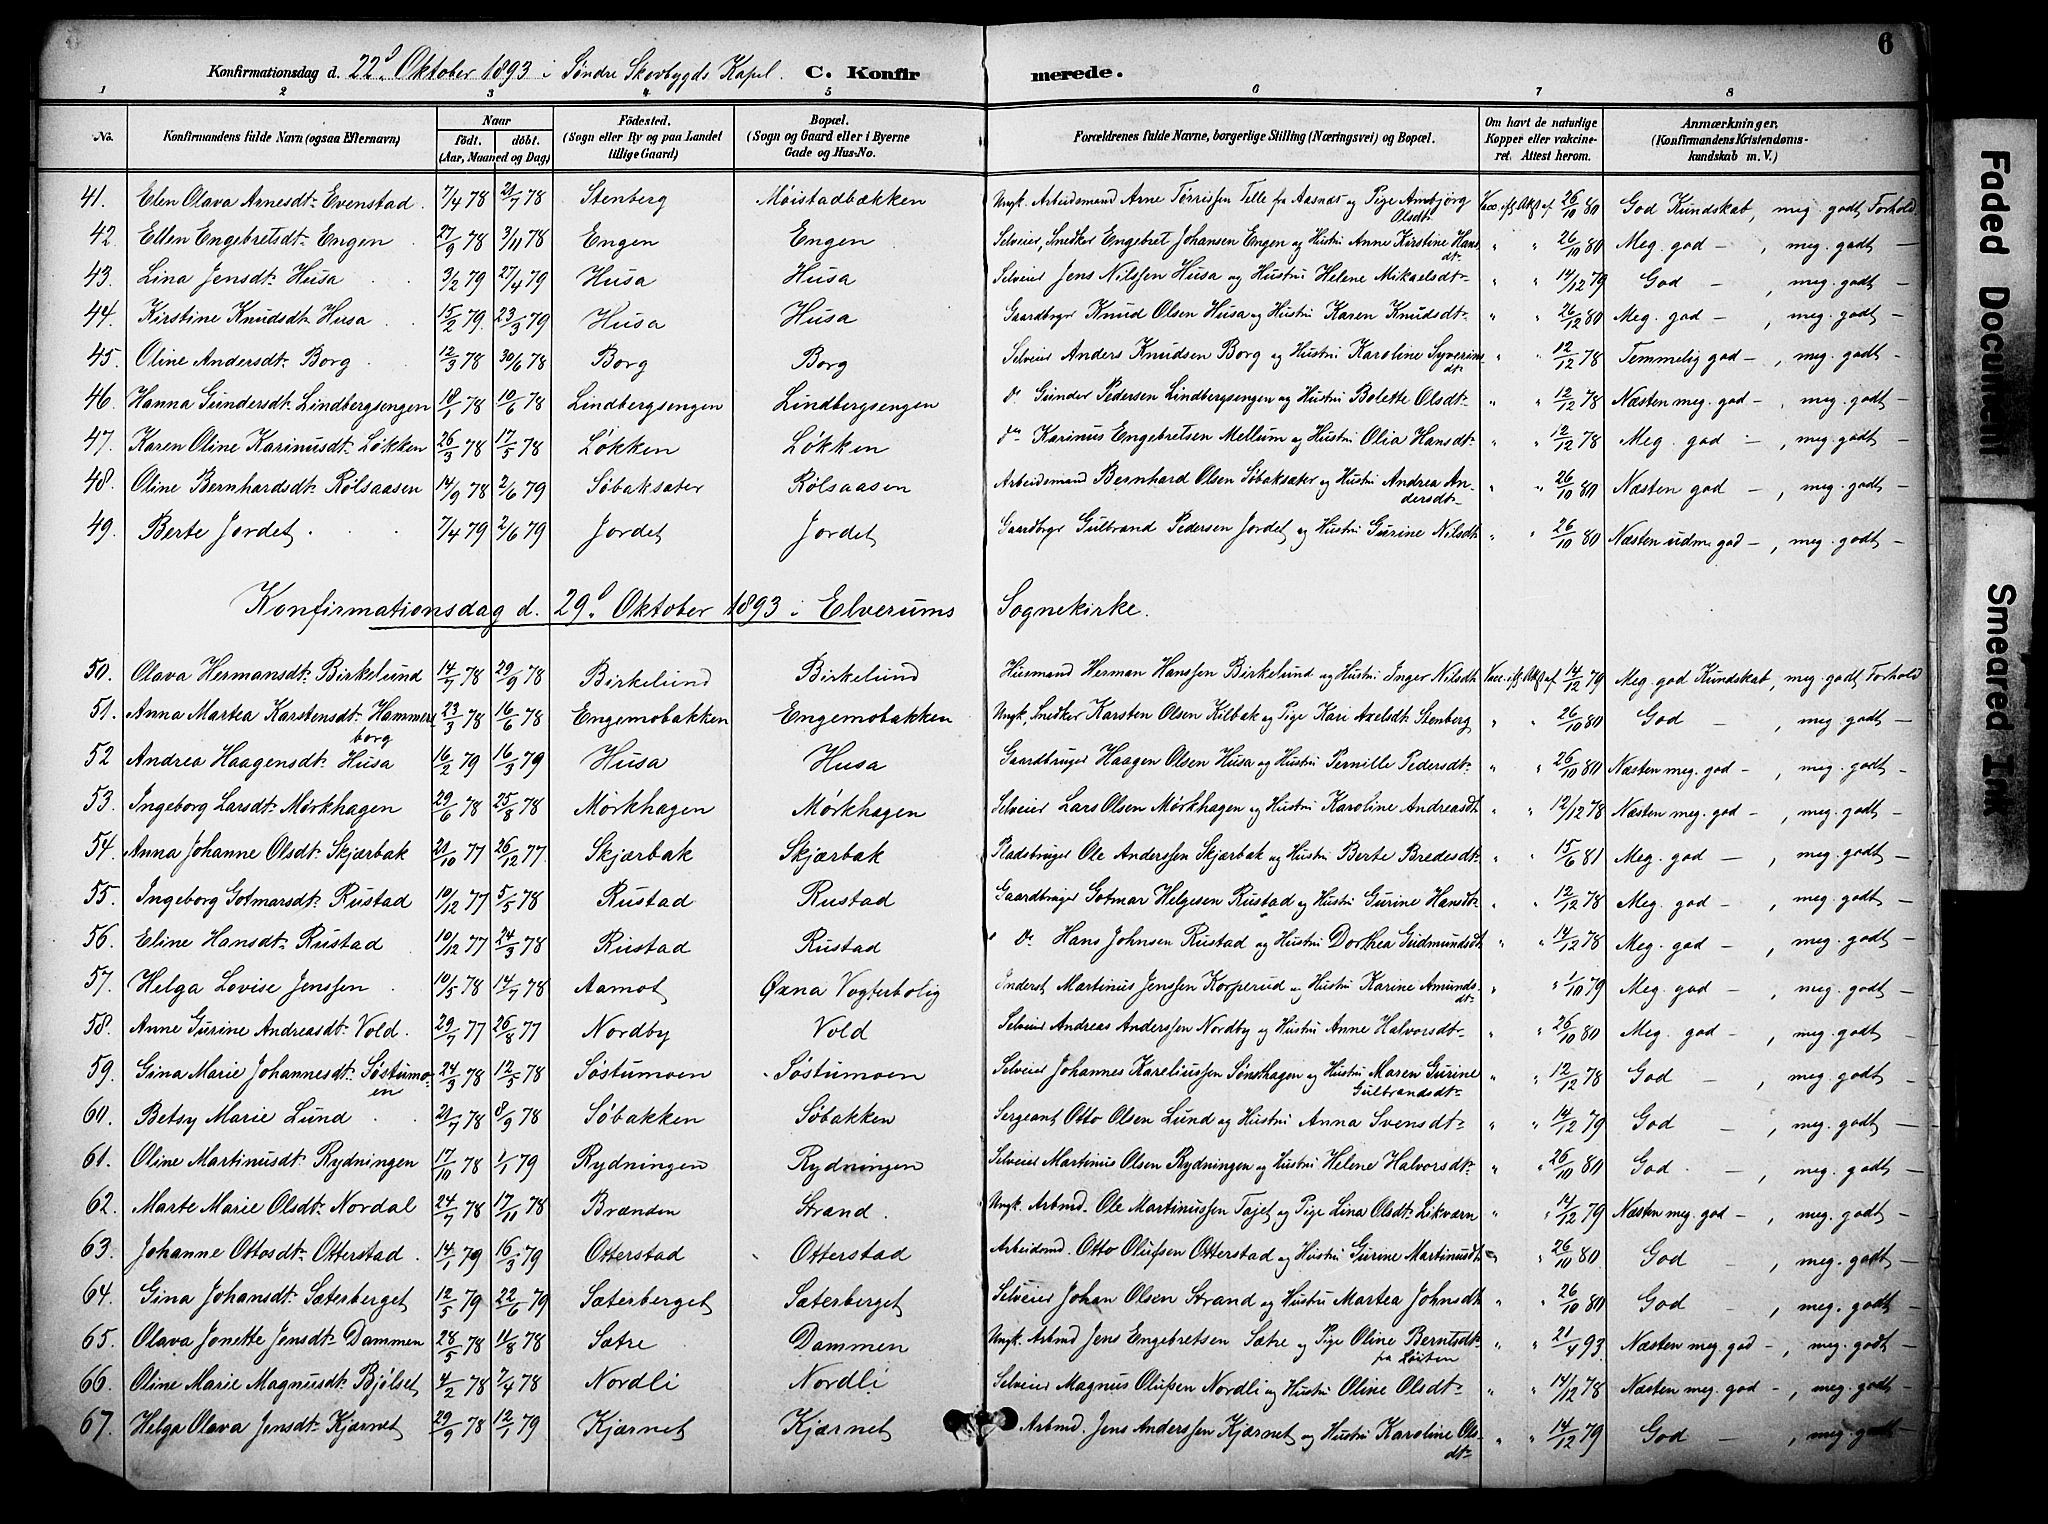 6
Konfirmationsdag d. 22d Oktober 1893 i Søndre Skovbygds Kapel. C. Konfirmerede.
1 2 3 4 5 6 7 8
No. Konfirmandens fulde Navn (ogsaa Efternavn) Naar født. døbt. (Aar, Maaned og Dag) Fødested. (Sogn eller By og paa Landet tillige Gaard) Bopæl. (Sogn og Gaard eller i Byerne Gade og Hus-No. Forældrenes fulde Navne, borgerlige Stilling (Næringsvei) og Bopæl. Om havt de naturlige Kopper eller vakcineret. Attest herom. Anmærkninger. (Konfirmandens Kristendomskundskab m. V.)
41. Elen Olava Arnesdt. Evenstad. 7/4 78 21/7 78 Stenberg Møistadbækken Ungk. Arbeidsmand Arne Tørrissen Telle fra Aasnæs og Pige Ambjørg Olsdt. Vacc. iflg Atts af 26/10 80 God Kundskab, meg. godt Forhold
42. Ellen Engebretsdt. Engen 27/9 78 3/11 78 Engen Engen Selveier, Snedker Engebret Johansen Engen og Hustru Anne Kirstine Hansdt. " " 26/10 80 Meg. god — , meg. godt —
43. Lina Jensdt. Husa 3/2 79 27/4 79 Husa Husa Selveier Jens Nilssen Husa og Hustru Helene Mikaelsdt. " " 14/12 79 God — , meg. godt —
44. Kirstine Knudsdt. Husa 15/2 79 23/3 79 Husa Husa Gaardbrger Knud Olsen Husa og Hustru Karen Knudsdt. " " 26/12 80 Meg. god — , meg. godt —
45. Oline Andersdt. Borg 12/3 78 30/6 78 Borg Borg Selveier Anders Knudsen Borg og Hustru Karoline Syverinsdt. " " 12/12 78 Temmelig god — , meg. godt —
46. Hanna Gundersdt. Lindbergsengen 18/1 78 10/6 78 Lindbergsengen Lindbergsengen do Gunder Pedersen Lindbergsengen og Hustru Bolette Olsdt. " " 12/12 78 Næsten meg. god — , meg. godt —
47. Karen Oline Karinusdt. Løkken 26/3 78 17/5 78 Løkken Løkken do Karinus Engebretsen Mellum og Hustru Olia Hansdt. " " 12/12 78 Meg. god — , meg. godt —
48. Oline Bernhardsdt. Rølsaasen 14/9 78 2/6 79 Søbaksæter Rølsaasen Arbeidsmand Bernhard Olsen Søbaksæter og Hustru Andrea Andersdt. " " 26/10 80 Næsten god — , meg. godt —
49. Berte Jordet 7/4 79 2/6 79 Jordet Jordet Gaardbrger Gulbrand Pedersen Jordet og Hustru Gurine Nilsdt. " " 26/10 80 Næsten udm. god — , meg. godt —
Konfirmationsdag d. 29d Oktober 1893 i Elverums Sognekirke.
50. Olava Hermansdt. Birkelund 14/7 78 29/9 78 Birkelund Birkelund Husmand Herman Hanssen Birkelund og Hustru Inger Nilsdt. Vacc. iflg Atts af 14/12 79 Meg. god Kundskab, meg. godt Forhold
51. Anna Martea Karstensdt. Hammersborg 23/3 78 16/6 78 Engemobakken Engemobakken Ungk. Snedker Karsten Olsen Kilbak og Pige Kari Axelsdt. Stenberg " " 26/10 80 God — , meg. godt —
52 Andrea Haagensdt. Husa 16/2 79 16/3 79 Husa Husa Gaardbruger Haagen Olsen Husa og Hustru Pernille Pedersdt. " " 26/10 80 Næsten meg. god — , meg. godt —
53. Ingeborg Larsdt. Mørkhagen 29/6 78 25/8 78 Mørkhagen Mørkhagen Selveier Lars Olsen Mørkhagen og Hustru Karoline Andreasdt. " " 12/12 78 Næsten meg. god — , meg. godt —
54. Anna Johanne Olsdt. Skjærbak 21/10 77 26/12 77. Skjærbak Skjærbak Pladsbruger Ole Anderssen Skjærbak og Hustru Berte Bredesdt. " " 15/6 81 Meg. god — , meg. godt —
55. Ingeborg Gotmarsdt. Rustad 10/12 77 5/5 78 Rustad Rustad Gaardbruger Gotmar Helgesen Rustad og Hustru Gurine Hansdt. " " 12/12 78 Meg. god — , meg. godt —
56. Eline Hansdt. Rustad 10/12 77 24/3 78 Rustad Rustad do Hans Johnsen Rustad og Hustru Dorthea Gudmundsdt. " " 14/12 78 Meg. god — , meg. godt —
57. Helga Lovise Jenssen 10/5 78 14/7 78 Aamot Øxna Vogterbolig Inderst Martinus Jenssen Korperud og Hustru Karine Amundsdt. " " 1/10 79 Meg. god — , meg. godt —
58. Anne Gurine Andreasdt. Vold. 29/7 77 26/8 77 Nordby Vold Selveier Andreas Anderssen Nordby og Hustru Anne Halvorsdt. " " 26/10 80 Meg. god — , meg. godt —
59. Gina Marie Johannesdt. Søstumoen 24/3 78 12/5 78 Søstumoen Søstumoen Selveier Johannes Kareliussen Sønsthagen og Hustru Maren Gurine Gulbrandsdt. " " 12/12 78 God — , meg. godt —
60. Betsy Marie Lund 21/7 78 8/9 78 Søbakken Søbakken Sergeant Otto Olsen Lund og Hustru Anna Svensdt. " " 14/12 79 God — , meg. godt —
61. Oline Martinusdt. Rydningen 17/10 78 1/1 79 Rydningen Rydningen Selveier Martinus Olsen Rydningen og Hustru Helene Halvorsdt. " " 26/10 80 God — , meg. godt —
62. Marte Marie Olsdt. Nordal 24/7 78 17/11 78 Brænden Strand. Ungk. Arbmd. Ole Martinussen Tajet og Pige Lina Olsdt. Likværn " " 14/12 79 Næsten meg. god — , meg. godt —
63. Johanne Ottosdt. Otterstad 14/1 79 16/3 79 Otterstad Otterstad Arbeidsmd. Otto Olufsen Otterstad og Hustru Gurine Martinusdt. " " 26/10 80 God — , meg. godt —
64. Gina Johansdt. Sæterberget 12/5 79 22/6 79 Sæterberget Sæterberget Selveier Johan Olsen Strand og Hustru Martea Johnsdt. " " 26/10 80 God — , meg. godt —
65. Olava Jonette Jensdt. Dammen 28/5 78 11/8 78 Sætre Dammen Ungk. Arbmd Jens Engebretsen Sætre og Pige Oline Berntsdt. fra Løiten " " 21/4 93. Næsten meg. god — , meg. godt —
66. Oline Marie Magnusdt. Bjølset 4/2 78 7/4 78 Nordli Nordli Selveier Magnus Olufsen Nordli og Hustru Oline Olsdt. " " 14/12 78 Næsten meg. god — , meg. godt —
67. Helga Olava Jensdt. Kjærnet 29/9 78 12/1 79 Kjærnet Kjærnet Arbmd. Jens Anderssen Kjærnet og Hustru Karoline Olsdt. " " 14/12 79 God — , meg. godt —
Faded Document
Smeared Ink